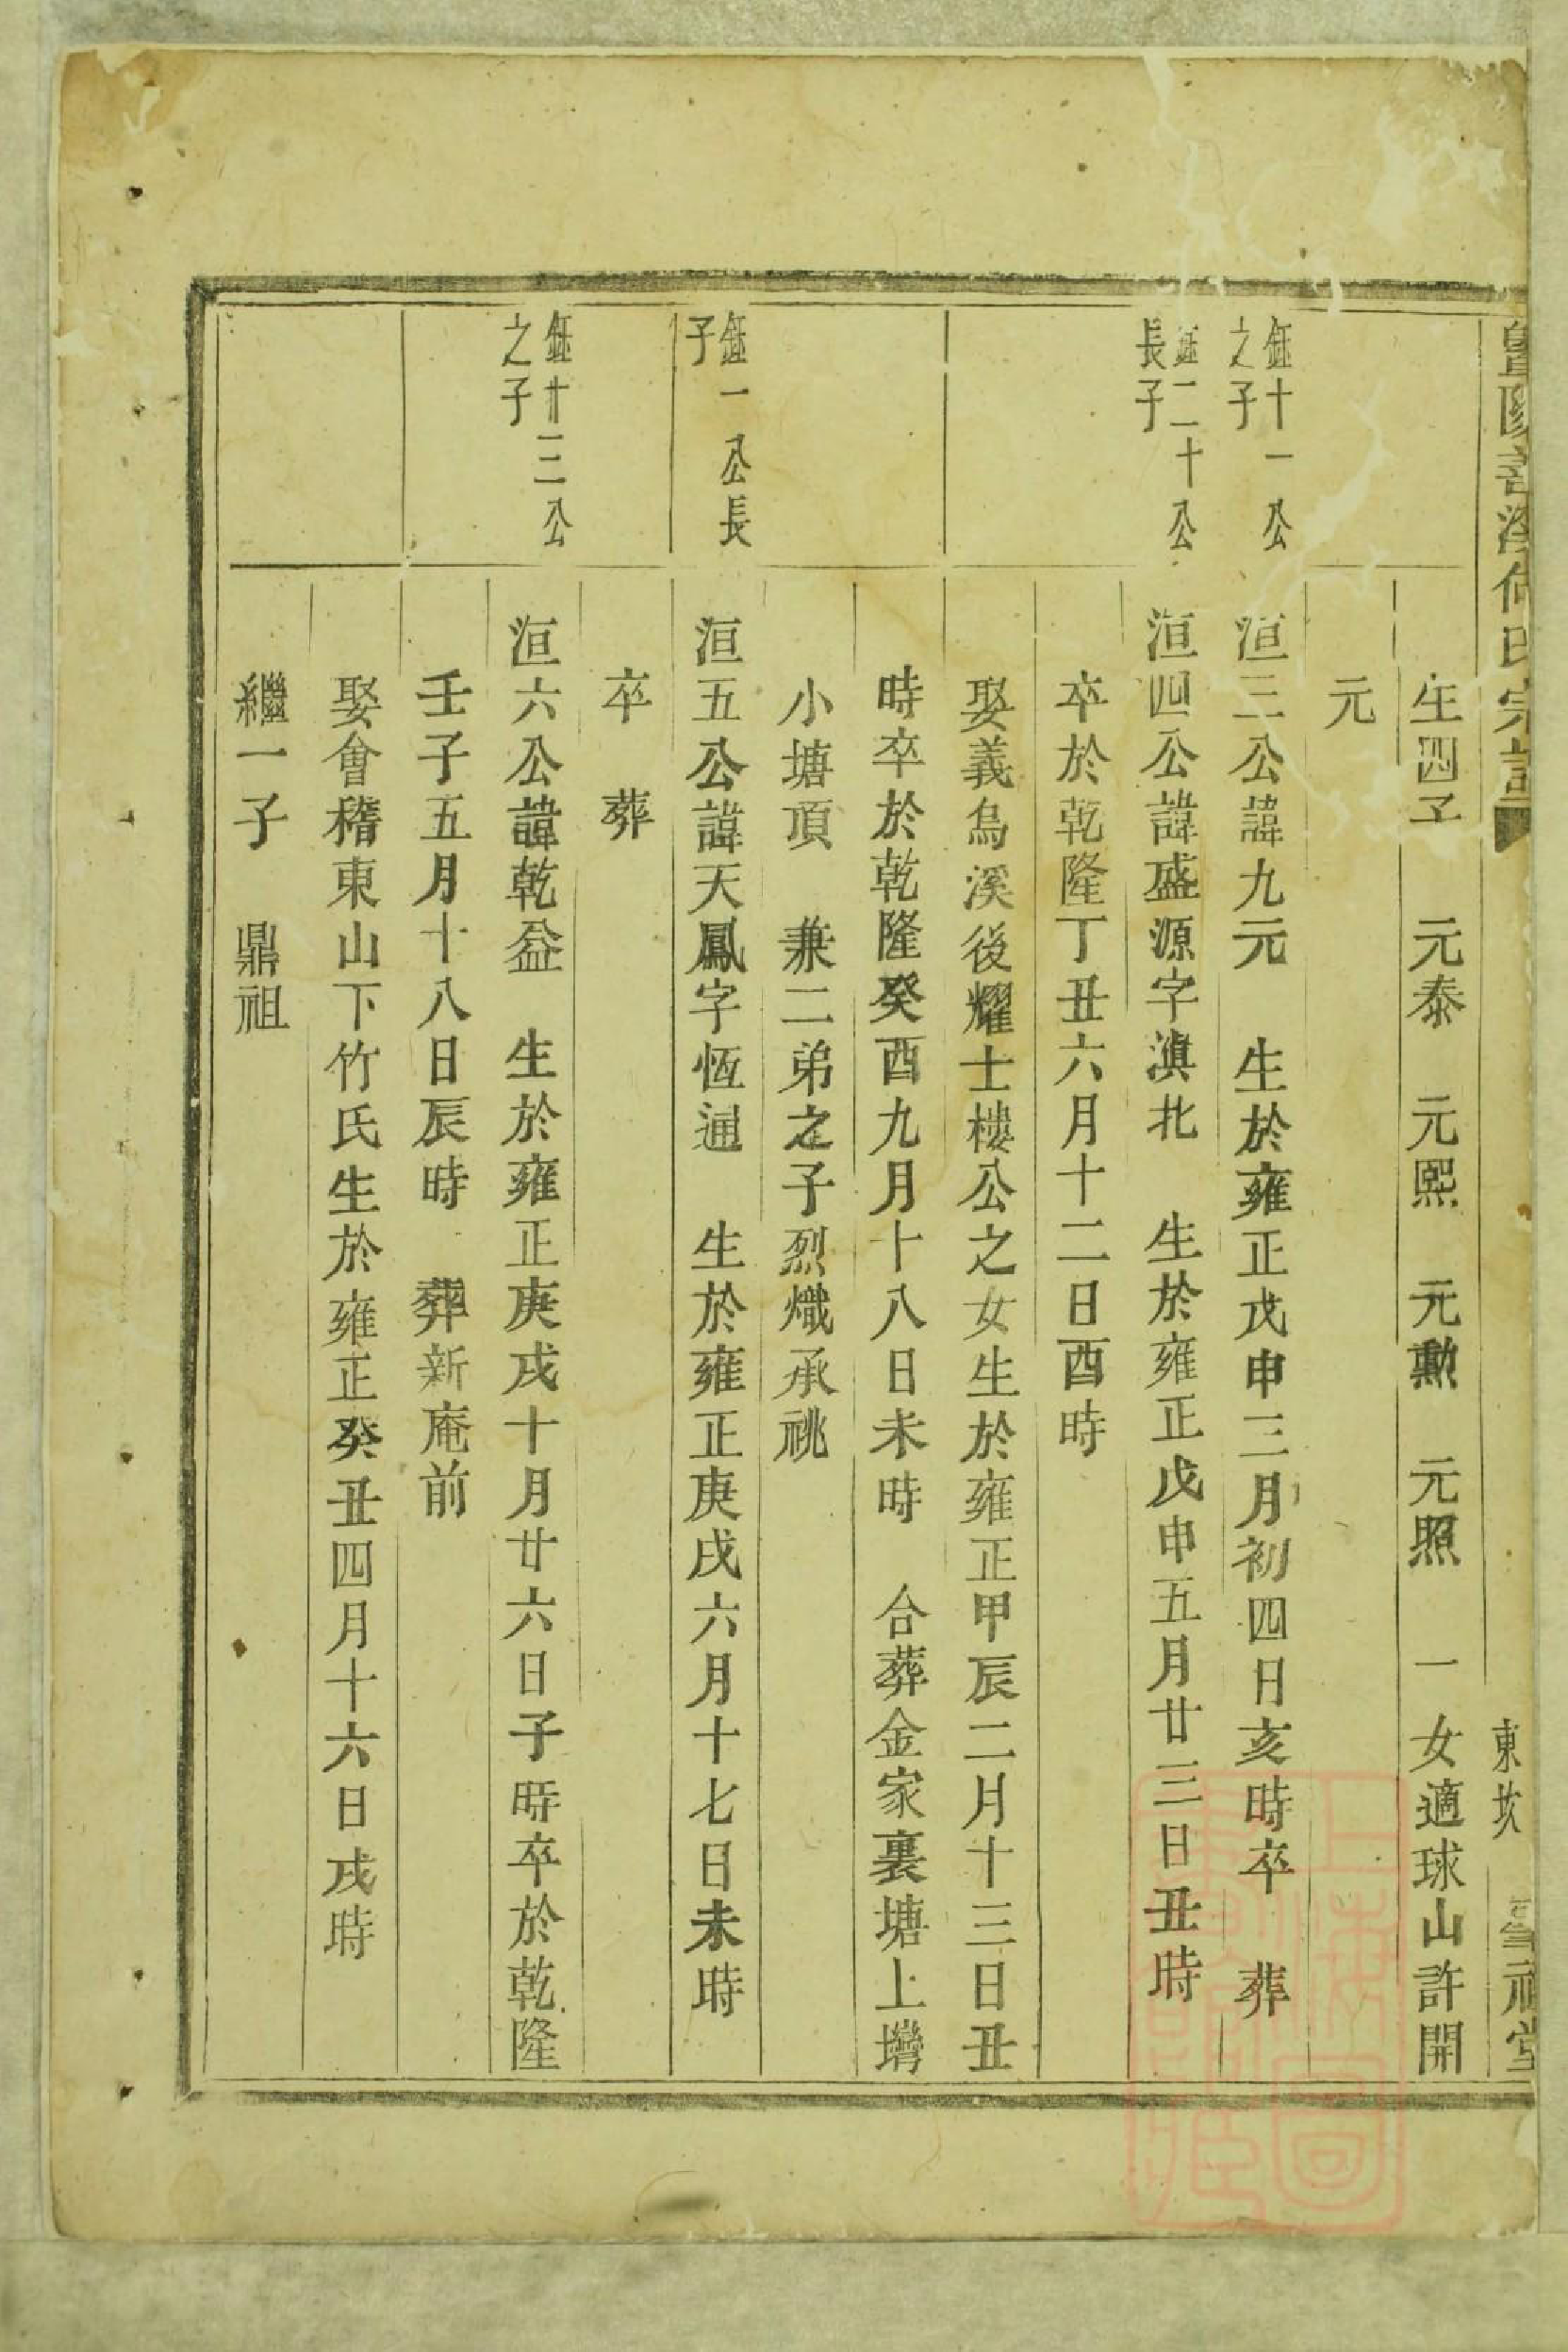 暨陽善溪何氏宗譜
東坎
祠堂
生四子 元泰 元熙 元勲 元照 一女適球山許開
元
鉦十一公
之子
洹三公諱九元 生於雍正戊申三月初四日亥時卒 葬
鉦二十公
長子
洹四公諱盛源字滇北 生於雍正戊申五月廿三日丑時
卒於乾隆丁丑六月十二日酉時
娶義烏溪後耀士樓公之女生於雍正甲辰二月十三日丑
時卒於乾隆癸酉九月十八日未時 合葬金家裏塘上塆
小塘頂 兼二弟之子烈熾承祧
鉦一公長
子
洹五公諱天鳳字恆通 生於雍正庚戌六月十七日未時
卒 葬
鉦廿三公
之子
洹六公諱乾益 生於雍正庚戌十月廿六日子時卒於乾隆
壬子五月十八日辰時 葬新庵前
娶會稽東山下竹氏生於雍正癸丑四月十六日戌時
繼一子 鼎祖